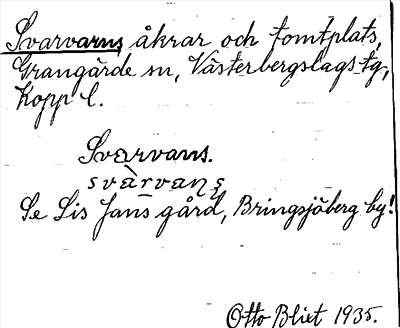 Svarvarns åkrar och tomtplats,
Grangärde sn, Västerbergslags tg,
Kopp l.
Svarvans.
svàrvaṇṣ
Se Lis Jans gård, Bringsjöberg by!
Otto Blixt 1935.